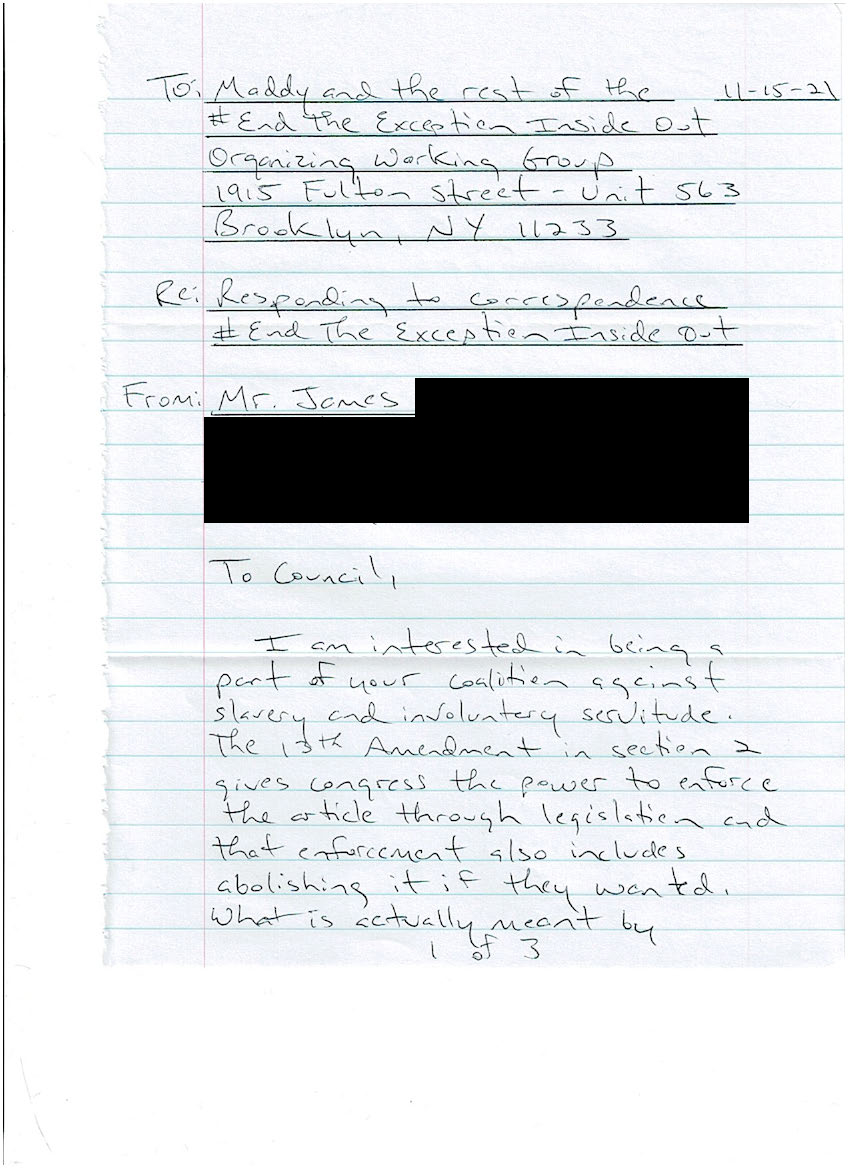 To: Maddy and the rest of the 11-15-21
# End The Exception Inside Out
Organizing Working Group
1915 Fulton Street - Unit 563
Brooklyn, NY 11233
Re: Responding to correspondence
# End The Exception Inside Out
From: Mr. James
To Council,
I am interested in being a
part of your coalition against
slavery and involuntary servitude.
The 13th Amendment in section 2
gives congress the power to enforce
the article through legislation and
that enforcement also includes
abolishing it if they wanted.
What is actually meant by
1 of 3